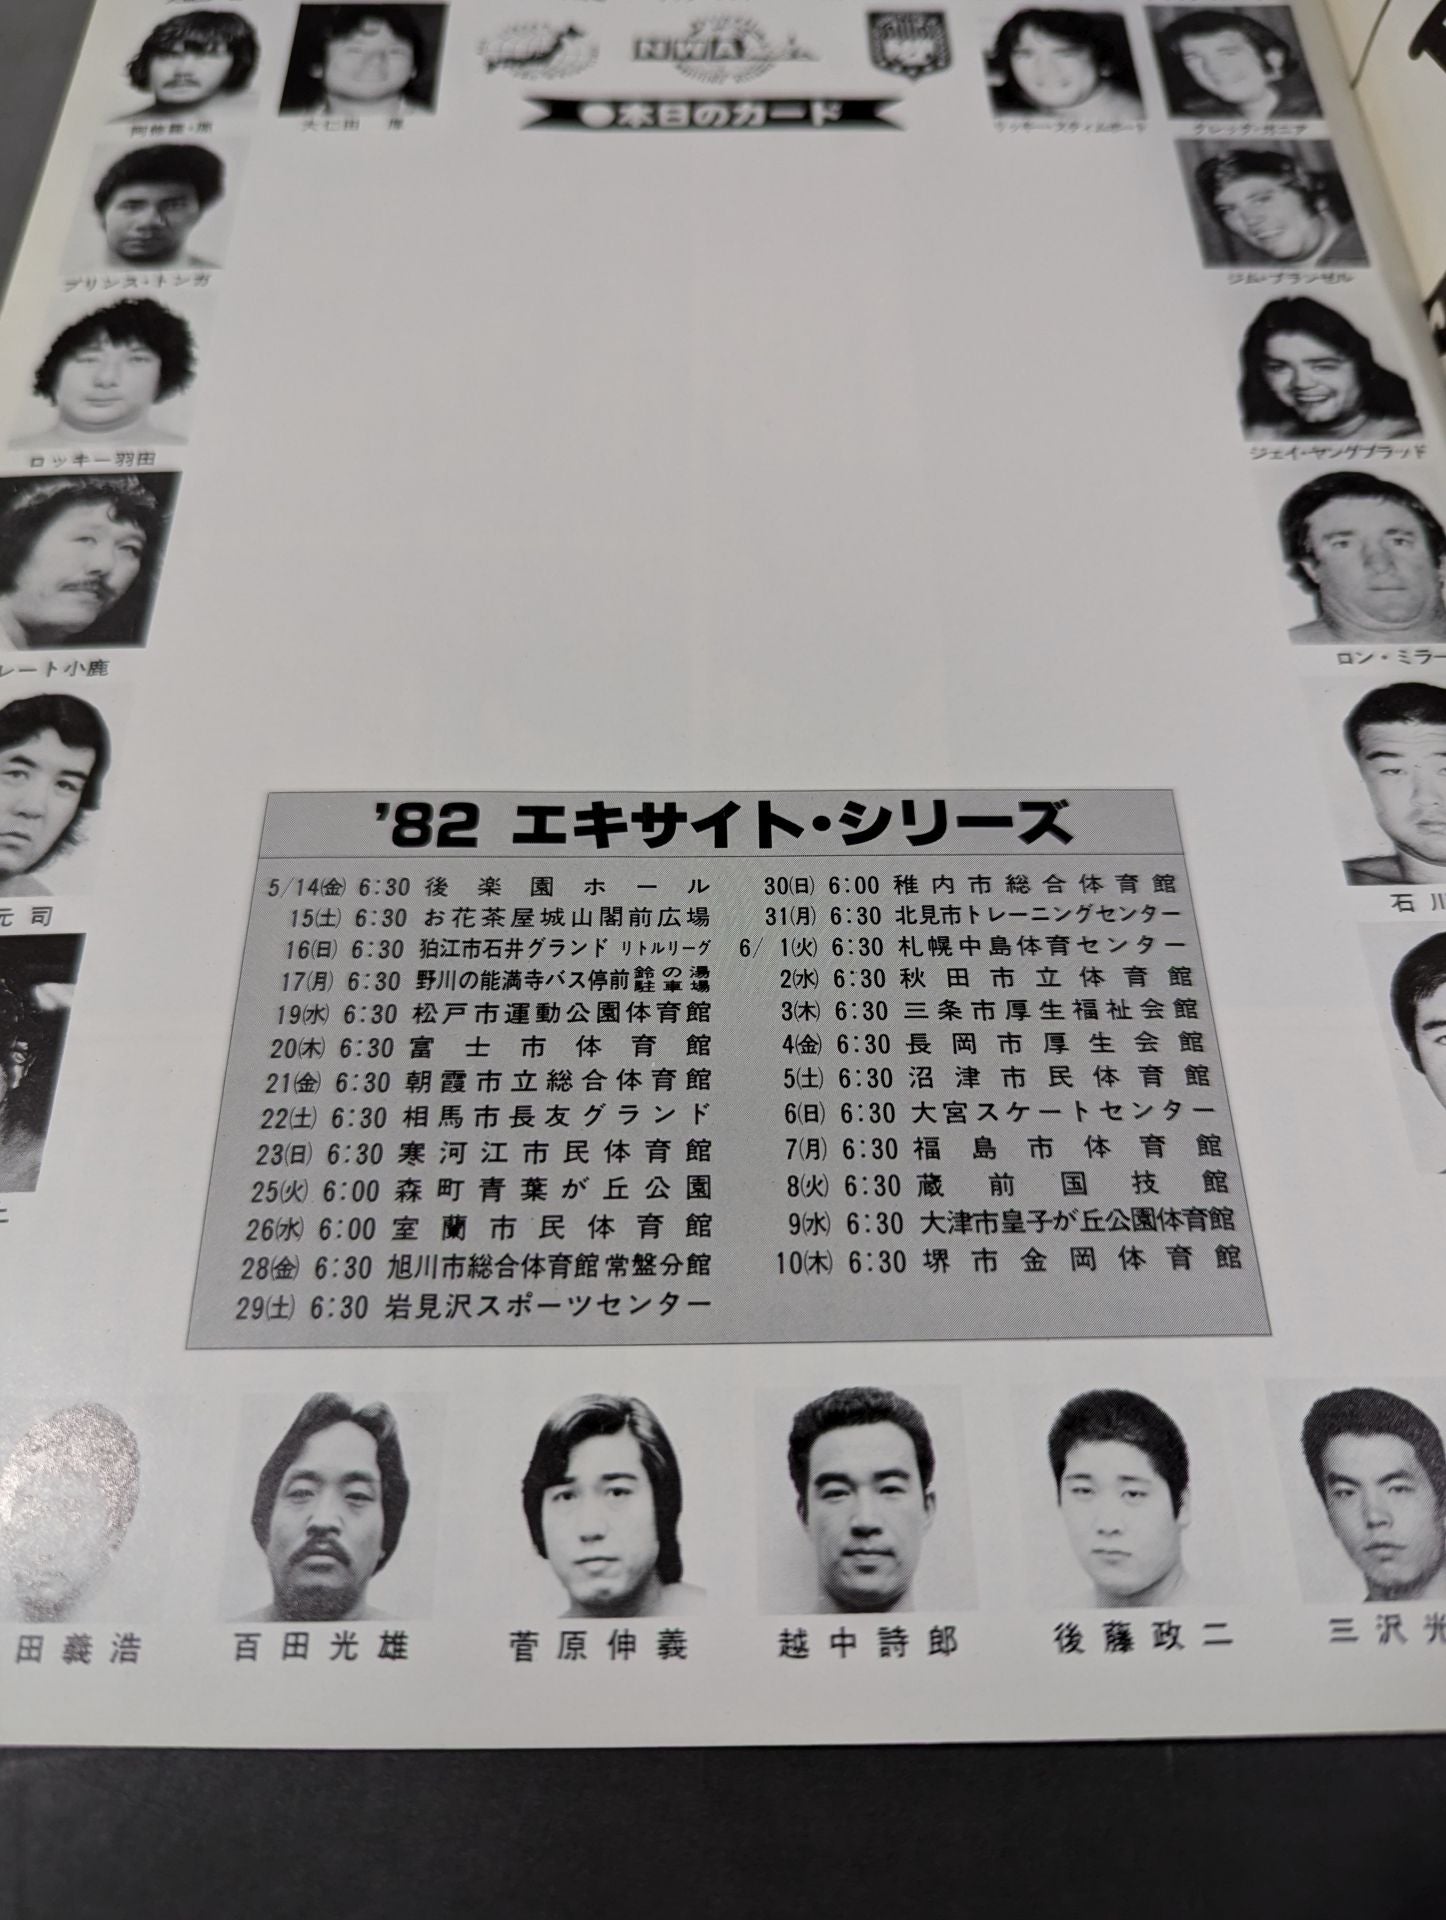 NWA
●本日のカード
プリンス・トンガ
ジム・ブランゼル
ロッキー羽田
ジェイ・ヤングブラッド
レート小鹿
ロン・ミラー
元司
石川
'82 エキサイト・シリーズ
5/14(金) 6:30 後楽園ホール
15(土) 6:30 お花茶屋城山閣前広場
16(日) 6:30 狛江市石井グランド リトルリーグ
17(月) 6:30 野川の能満寺バス停前鈴の湯駐車場
19(水) 6:30 松戸市運動公園体育館
20(木) 6:30 富士市体育館
21(金) 6:30 朝霞市立総合体育館
22(土) 6:30 相馬市長友グランド
23(日) 6:30 寒河江市民体育館
25(火) 6:00 森町青葉が丘公園
26(水) 6:00 室蘭市民体育館
28(金) 6:30 旭川市総合体育館常盤分館
29(土) 6:30 岩見沢スポーツセンター
30(日) 6:00 稚内市総合体育館
31(月) 6:30 北見市トレーニングセンター
6/1(火) 6:30 札幌中島体育センター
2(水) 6:30 秋田市立体育館
3(木) 6:30 三条市厚生福祉会館
4(金) 6:30 長岡市厚生会館
5(土) 6:30 沼津市民体育館
6(日) 6:30 大宮スケートセンター
7(月) 6:30 福島市体育館
8(火) 6:30 蔵前国技館
9(水) 6:30 大津市皇子が丘公園体育館
10(木) 6:30 堺市金岡体育館
田義浩
百田光雄
菅原伸義
越中詩郎
後藤政二
三沢光